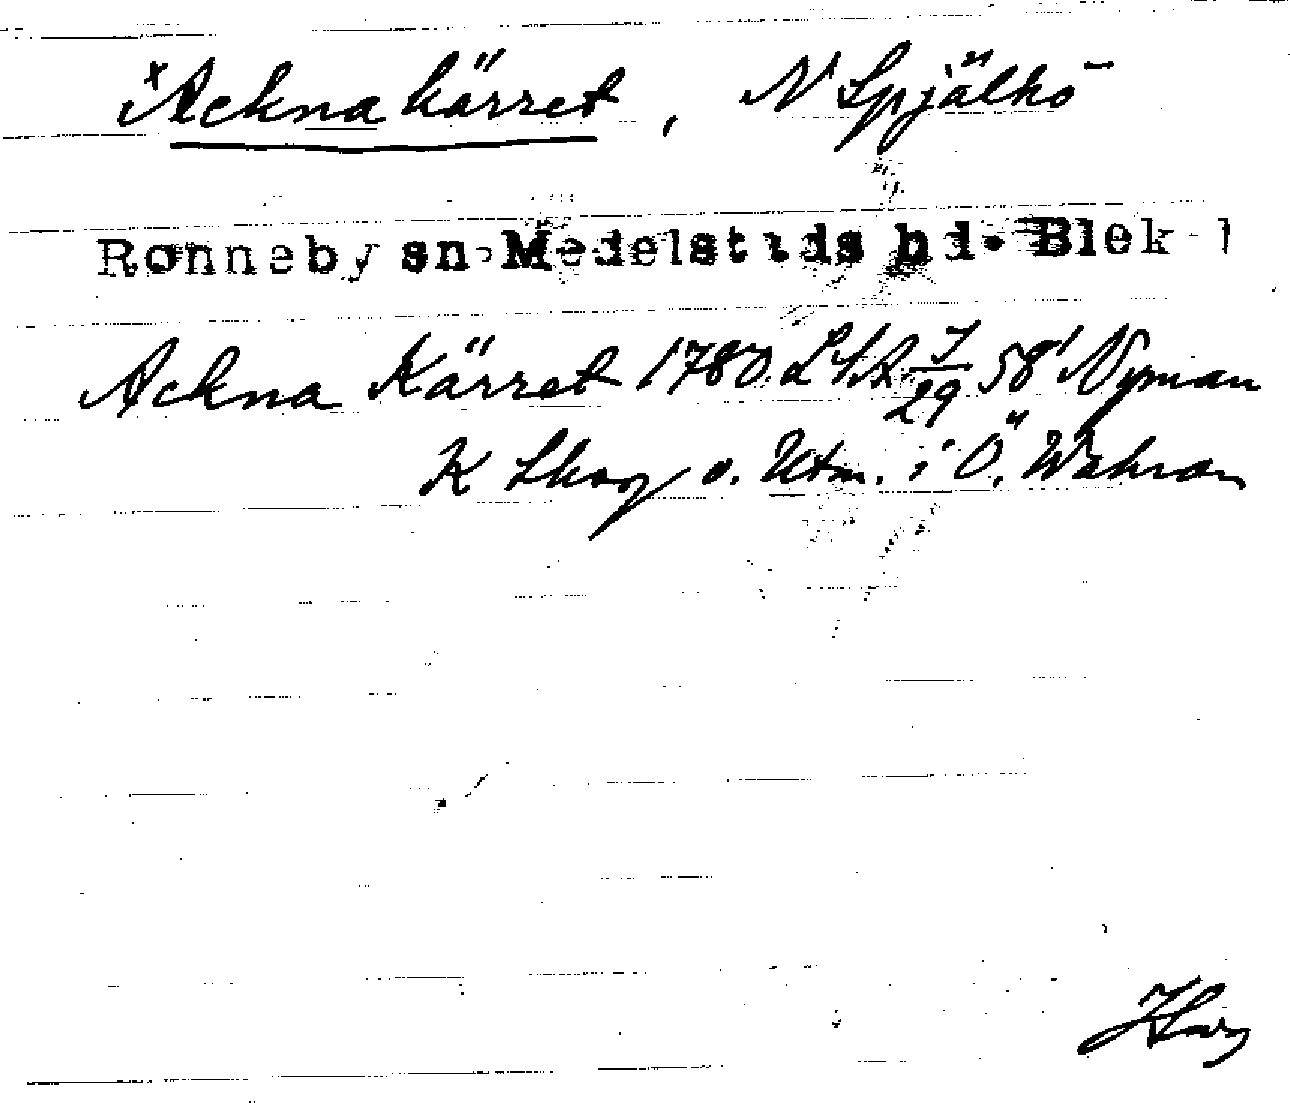 ×Acknakärret, N Spjälkö
Ronneby sn. Medelstads hd. Blek. l
Ackna Kärret 1780. LSA 7/29 58' Nyman
K Skog o. Utm. i Ö. Wahran